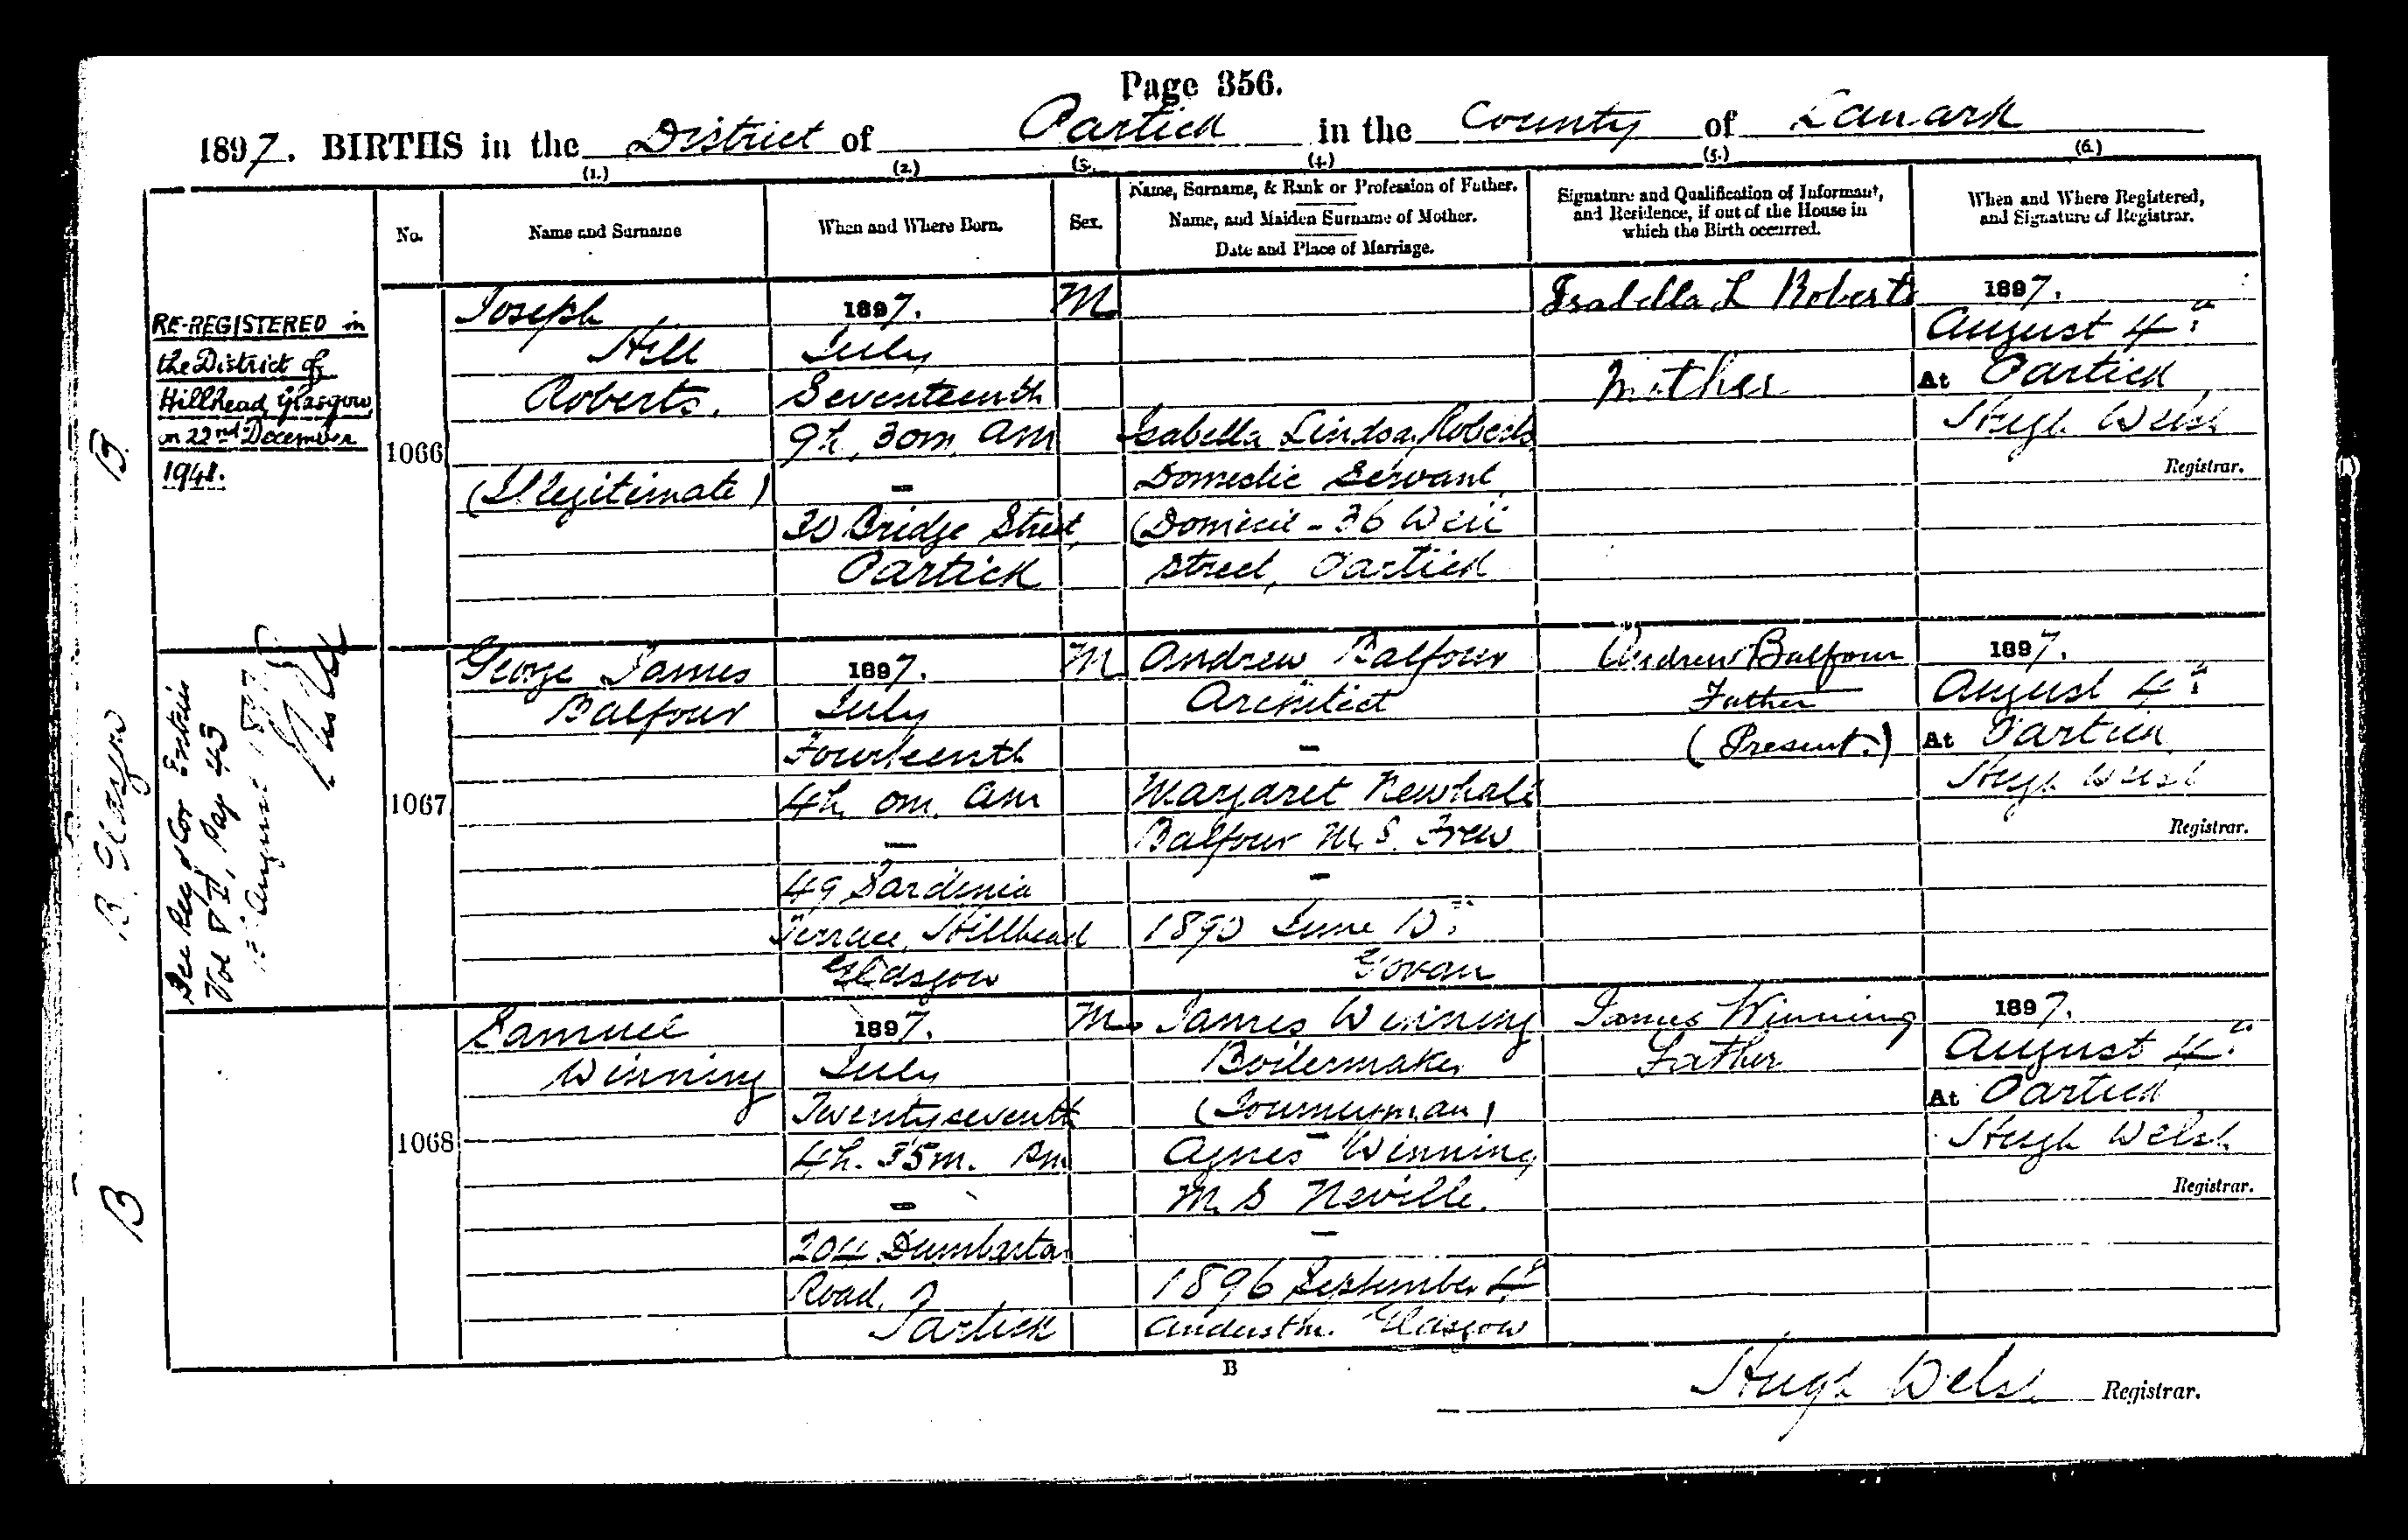 Page 356.
1897. BIRTHS in the District of Partick in the County of Lanark
(1.) (2.) (3. (4.) (5.) (6.)
No.
Name and Surname
When and Where Born.
Sex.
Name, Surname, & Rank or Profession of Father.
Name, and Maiden Surname of Mother.
Date and Place of Marriage.
Signature and Qualification of Informant,
and Residence, if out of the House in
which the Birth occurred.
When and Where Registered,
and Signature of Registrar.
RE-REGISTERED in
the District of
Hillhead, Glasgow,
on 22nd December
1941.
B
1066
Joseph
Hill
Roberts.
(Illegitimate)
1897.
July
Seventeenth
9h. 30m. am
30 Bridge Street,
Partick
M
Isabella Lindsay Roberts
Domestic Servant
(Domicil - 36 Well
Street, Partick
Isabella L Roberts
Mother
1897.
August 4th
At Partick
Hugh Welsh
Registrar.
See Reg of Cor Entries
Vol VI, Pag 43
August 1897
B. Glasgow
1067
George James
Balfour
1897.
July
Fourteenth
4h. 0m. am
49 Sardinia
Terrace, Hillhead
Glasgow
M
Andrew Balfour
Architect
Margaret Newhall
Balfour M.S. Frew
1890 June
Govan
Andrew Balfour
Father
(Present.)
1897.
August 4th
At Partick
Hugh Welsh
Registrar.
B
1068
Samuel
Winning
1897.
July
Twentyseventh
4h. 35m. Pm
204 Dumbarton
Road,
Partick
M.
James Winning
Boilermaker
(Journeyman)
Agnes Winning
M.S Neville.
1896 September 4th
Anderston. Glasgow
James Winning
Father
1897.
August 4th
At Partick
Hugh Welsh
Registrar.
B
Hugh Welsh Registrar.